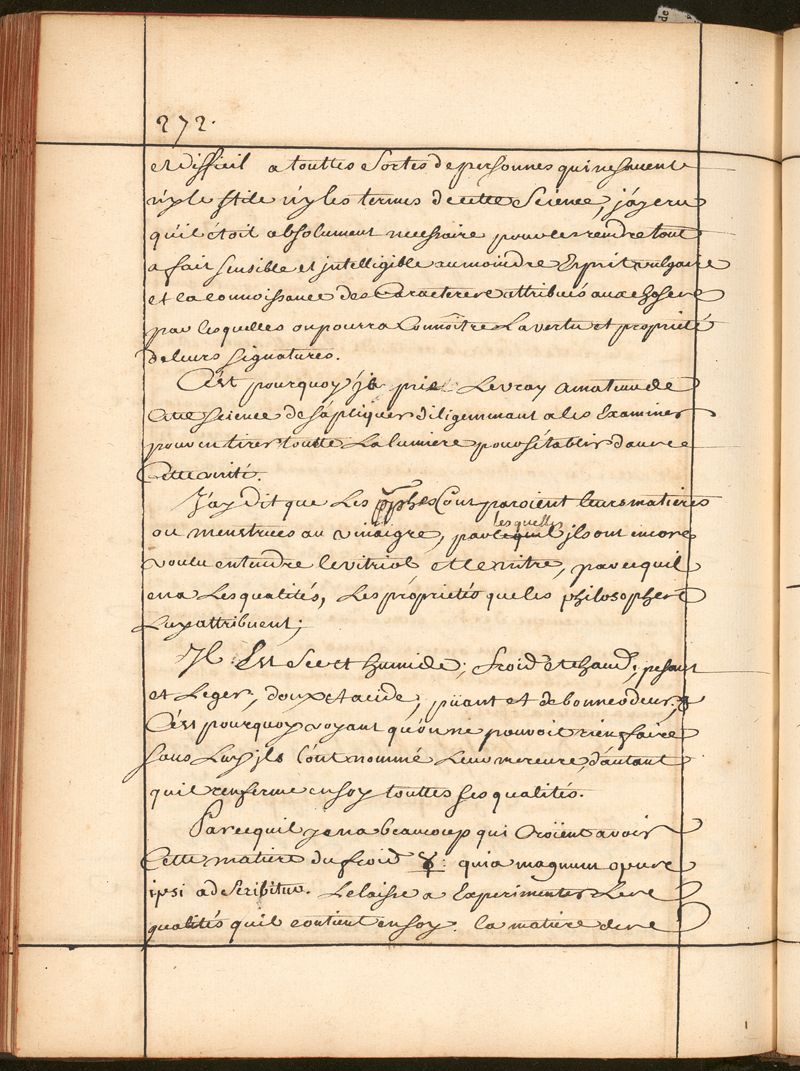 272.
et difficil a touttes Sortes de personnes qui ne savent
n'y le stile n'y les termes de cette Science, j'ay cru
qu'il étoit absolument necessaire pour les rendre tout
a fait sensible et jntelligible au moindre Esprit vulgaire
et la connoissance des Caracteres attribués aux choses
par lesquelles on pourra Connoître La vertu et proprieté
de leurs signatures.
C'est pourquoy je prie Le vray amateur de
Cette science de s'apliquer diligemmant a les Examiner
pour en tirer toutte La lumiere pour s'établir dans
Cette verité.
J'ay dit que Les pphes Comparoient leurs matieres
ou menstrues au vinaigre, par lesquelles jls ont encore
voulu entendre le vitriol et le nitre, parcequil
en a Les qualités, Les propriétés que les philosophes
Luy attribuent;
Jl Est Sec et humide; froid et chaud; pesant
et Leger, doux et acide, püant et de bonne odeur;
C'est pourquoy voyant qu'on ne pouvoit rien faire
sans Luy jls L'ont nommé Leur mercure, d'autant
quil renferme en soy touttes ses qualités.
Parcequil y en a beaucoup qui Croïent avoir
Cette matiere du froid ☿: quia magnum opus
ipsi adscribitur. Je laisse a Experimenter Les
qualités quil contient en soy. la matiere des